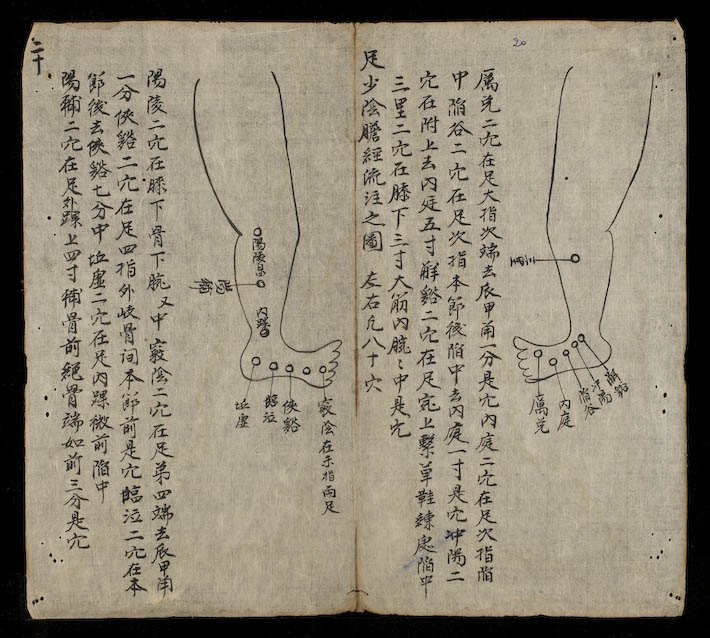 20
厲兌二穴在足大指次端去爪甲角一分是穴內庭二穴在足次指陷
中陷谷二穴在足次指本節後陷中去內庭一寸是穴冲陽二
穴在附上去內廷五寸觧谿二穴在足完上繫草鞋練處陷中
三里二穴在膝下三寸大筋內腕〻中是穴
足少陰膽經流注之圖 左右凢八十穴
三里
觧谿
冲陽
陷谷
內庭
厲兌
陽陵泉
內踝
竅陰在示指兩足
俠谿
臨泣
坵虛
陽陵二穴在膝下骨下腕又中竅陰二穴在足第四端去爪甲角
一分俠谿二穴在足四指外岐骨间本節前是穴臨泣二穴在本
節後去俠谿七分中坵虛二穴在足內踝微前陷中
陽補二穴在足外踝上四寸補骨前絕骨端如前三分是穴
二十